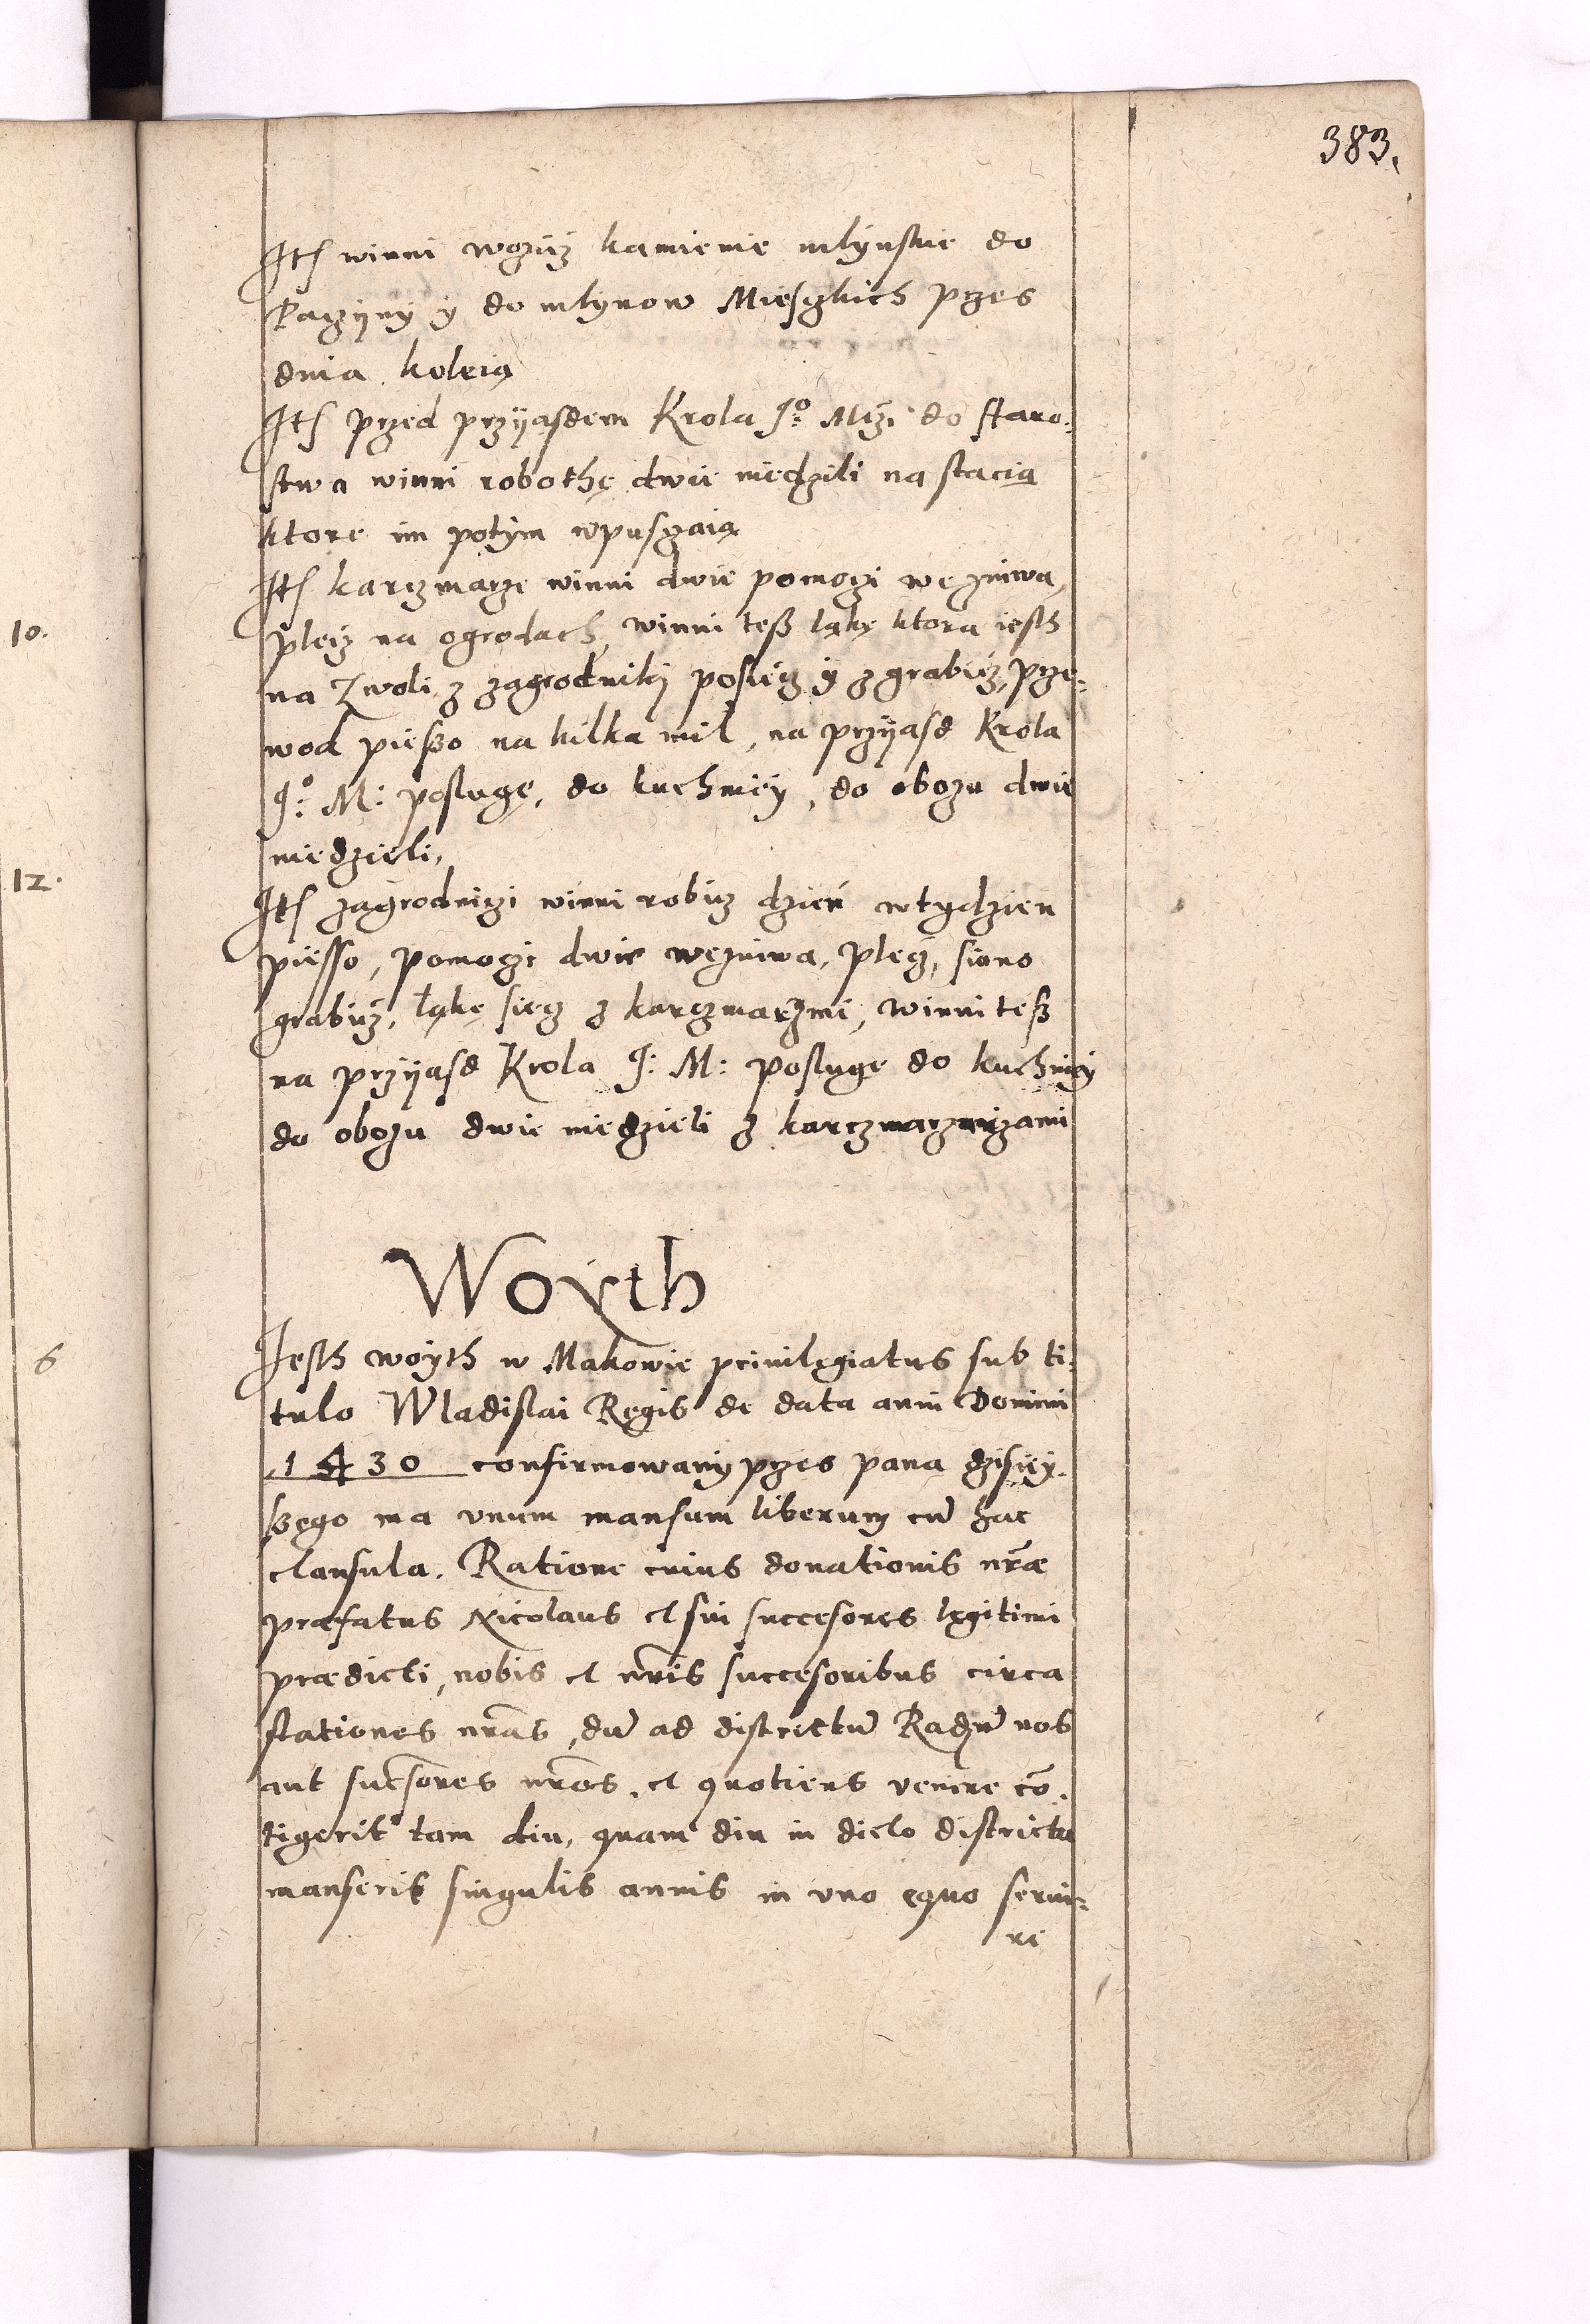 383.
Itẽ winni woziz kamienie mlynskie do
Raczyny y do mlynow Mieyszkich przes
dnia koleią
Itẽ przed przyiasdem Krola Jº: Mczi do staro:
stwa winni robothę dwie niedzili na stacią
ktore im potym wpuszaią
Itẽ karczmarze winni dwie pomoczi we zniwa,
plecz na ogrodach, winni teß ląkę ktora iesth
na Zwoli z zagrodniki posiecz y zgrabicz, prze:
wod pießo na kilka mil, na przyiasd Krola
Jº: M: poslugę, do kuchniey, do obozu dwie
niedzieli,
Itẽ zagrodniczi winni robicz dzień wtydzien
piesso, pomoczi dwie wezniwa, plecz, siano
grabicz, ląkę siecz z karczmarzmi, winni teß
na przyiasd Krola J: M: posluge do kuchniey
do obozu dwie niedzieli z karczmarzmi
Woyth
Jesth woyth w Makowie priuilegiatus sub ti:
tulo Wladislai Regis de data anni Domini
1430 confirmowany przes pana dzisiey:
ßego ma vnum mansum liberum cũ hac
clausula. Ratione cuius donationis nr̃æ
præfatus Nicolaus et sui succesores legitimi
prædicti, nobis et nr̃is succesoribus circa
stationes nr̃as, dũ ad districtũ Radzũ nos
aut sucsores nr̃os, et quotiens venire cõ:
tigerit tam diu, quam diu in dicto districtu
manserit singulis annis in vno equo serui:
re
10.
12.
6